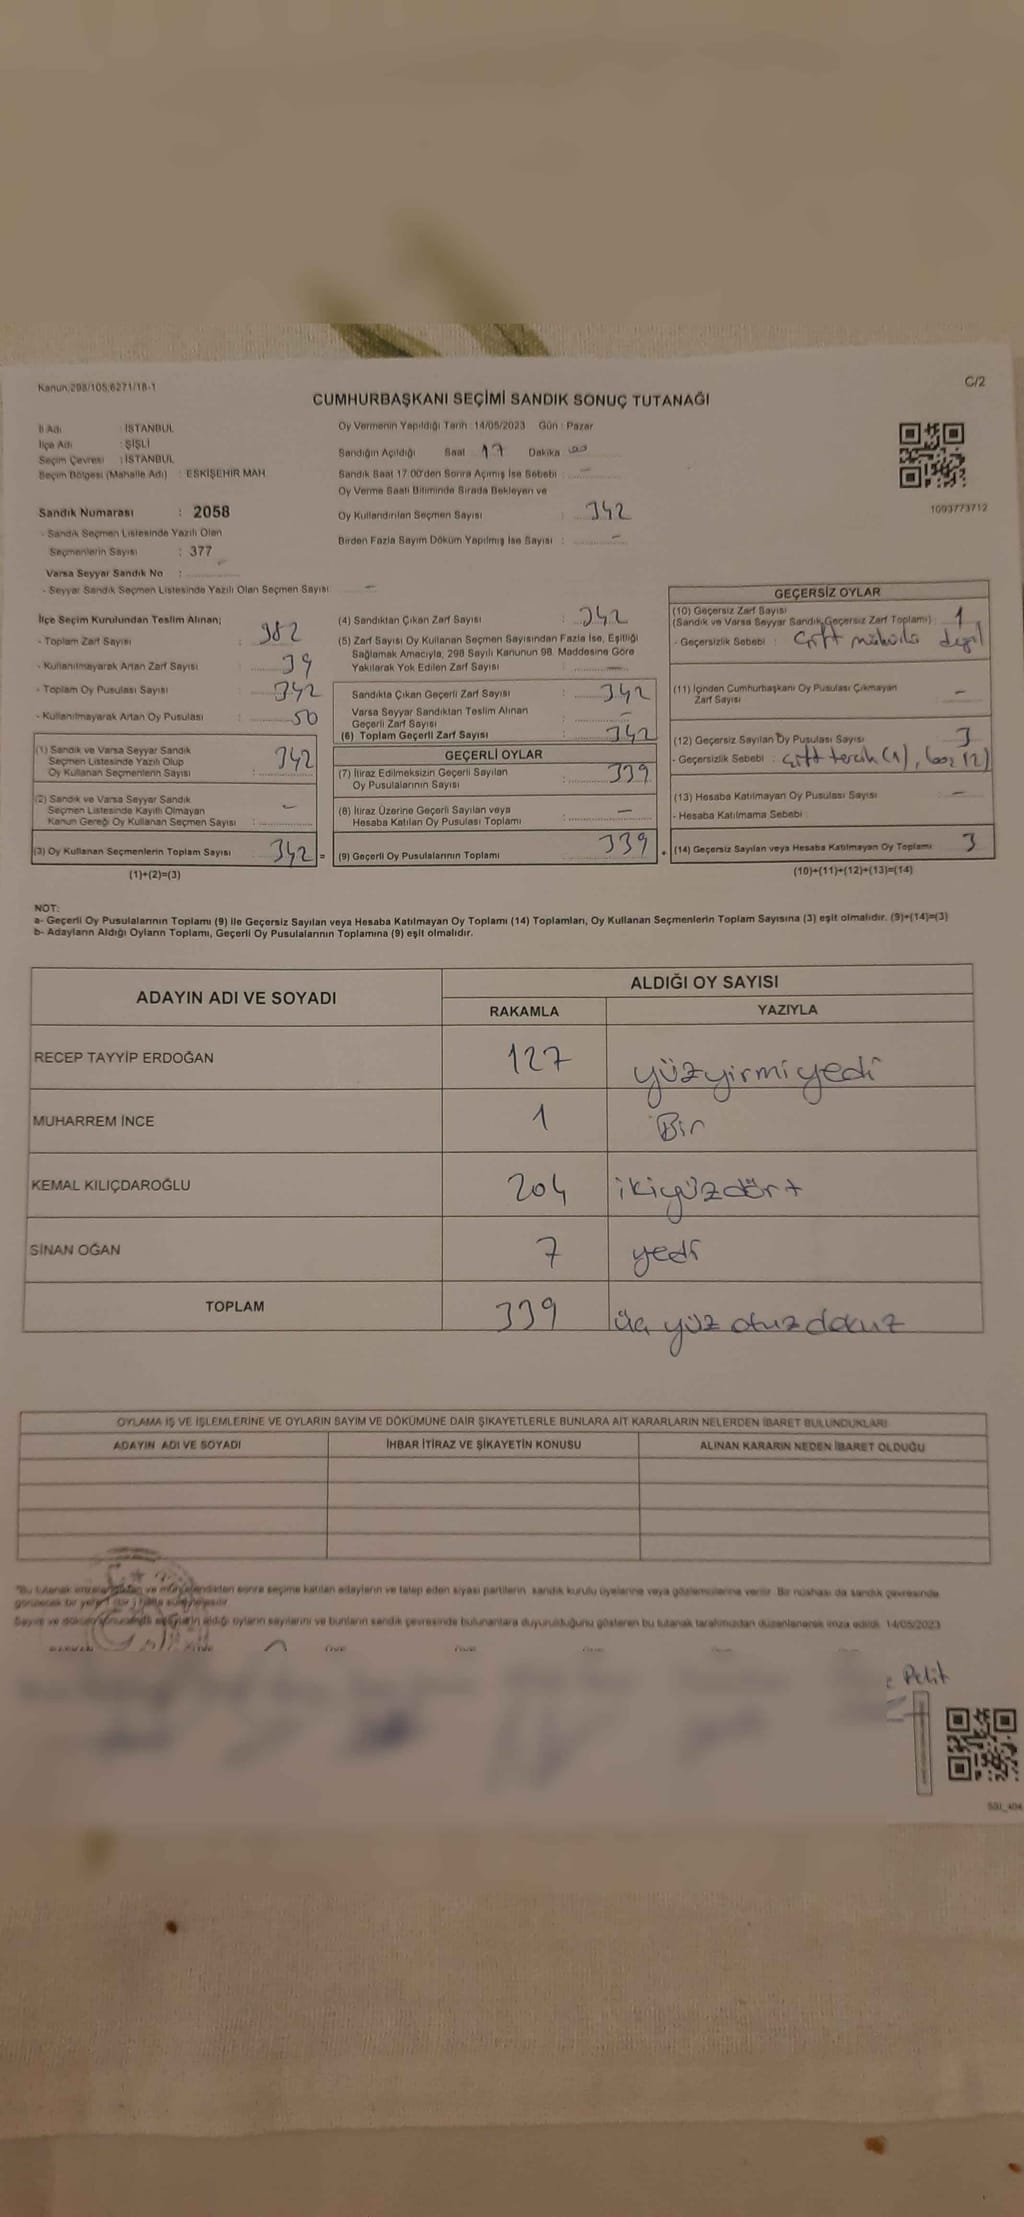 Kanun,298/105,6271/18-1
C/2
CUMHURBAŞKANI SEÇİMİ SANDIK SONUÇ TUTANAĞI
İl Adı : İSTANBUL
İlçe Adı : ŞİŞLİ
Seçim Çevresi : İSTANBUL
Seçim Bölgesi (Mahalle Adı) : ESKİŞEHİR MAH.
Sandık Numarası : 2058
- Sandık Seçmen Listesinde Yazılı Olan
Seçmenlerin Sayısı : 377
Varsa Seyyar Sandık No :
- Seyyar Sandık Seçmen Listesinde Yazılı Olan Seçmen Sayısı : -
Oy Vermenin Yapıldığı Tarih : 14/05/2023 Gün : Pazar
Sandığın Açıldığı Saat 17 Dakika 00
Sandık Saat 17.00'den Sonra Açımış İse Sebebi : -
Oy Verme Saati Bitiminde Sırada Bekleyen ve
Oy Kullandırılan Seçmen Sayısı : 342
Birden Fazla Sayım Döküm Yapılmış İse Sayısı : -
1093773712
İlçe Seçim Kurulundan Teslim Alınan;
- Toplam Zarf Sayısı : 382
- Kullanılmayarak Artan Zarf Sayısı : 39
- Toplam Oy Pusulası Sayısı : 342
- Kullanılmayarak Artan Oy Pusulası : 50
(1) Sandık ve Varsa Seyyar Sandık
Seçmen Listesinde Yazılı Olup
Oy Kullanan Seçmenlerin Sayısı : 342
(2) Sandık ve Varsa Seyyar Sandık
Seçmen Listesinde Kayıtlı Olmayan
Kanun Gereği Oy Kullanan Seçmen Sayısı : -
(3) Oy Kullanan Seçmenlerin Toplam Sayısı 342 =
(1)+(2)=(3)
(4) Sandıktan Çıkan Zarf Sayısı : 342
(5) Zarf Sayısı Oy Kullanan Seçmen Sayısından Fazla İse, Eşitliği
Sağlamak Amacıyla, 298 Sayılı Kanunun 98. Maddesine Göre
Yakılarak Yok Edilen Zarf Sayısı : -
Sandıkta Çıkan Geçerli Zarf Sayısı : 342
Varsa Seyyar Sandıktan Teslim Alınan
Geçerli Zarf Sayısı : -
(6) Toplam Geçerli Zarf Sayısı : 342
GEÇERLİ OYLAR
(7) İtiraz Edilmeksizin Geçerli Sayılan
Oy Pusulalarının Sayısı : 339
(8) İtiraz Üzerine Geçerli Sayılan veya
Hesaba Katılan Oy Pusulası Toplamı : -
(9) Geçerli Oy Pusulalarının Toplamı 339 +
GEÇERSİZ OYLAR
(10) Geçersiz Zarf Sayısı
(Sandık ve Varsa Seyyar Sandık Geçersiz Zarf Toplamı) : 1
- Geçersizlik Sebebi : çift mühürlü değil
(11) İçinden Cumhurbaşkanı Oy Pusulası Çıkmayan
Zarf Sayısı : -
(12) Geçersiz Sayılan Oy Pusulası Sayısı : 3
- Geçersizlik Sebebi : çift tercih (1), boş (2)
(13) Hesaba Katılmayan Oy Pusulası Sayısı : -
- Hesaba Katılmama Sebebi :
(14) Geçersiz Sayılan veya Hesaba Katılmayan Oy Toplamı 3
(10)+(11)+(12)+(13)=(14)
NOT:
a- Geçerli Oy Pusulalarının Toplamı (9) ile Geçersiz Sayılan veya Hesaba Katılmayan Oy Toplamı (14) Toplamları, Oy Kullanan Seçmenlerin Toplam Sayısına (3) eşit olmalıdır. (9)+(14)=(3)
b- Adayların Aldığı Oyların Toplamı, Geçerli Oy Pusulalarının Toplamına (9) eşit olmalıdır.
ADAYIN ADI VE SOYADI
ALDIĞI OY SAYISI
RAKAMLA YAZIYLA
RECEP TAYYİP ERDOĞAN 127 yüzyirmiyedi
MUHARREM İNCE 1 Bir
KEMAL KILIÇDAROĞLU 204 ikiyüzdört
SİNAN OĞAN 7 yedi
TOPLAM 339 üç yüz otuz dokuz
OYLAMA İŞ VE İŞLEMLERİNE VE OYLARIN SAYIM VE DÖKÜMÜNE DAİR ŞİKAYETLERLE BUNLARA AİT KARARLARIN NELERDEN İBARET BULUNDUKLARI
ADAYIN ADI VE SOYADI İHBAR İTİRAZ VE ŞİKAYETİN KONUSU ALINAN KARARIN NEDEN İBARET OLDUĞU
"Bu tutanak ve mühürlendikten sonra seçime katılan adayların ve talep eden siyasi partilerin sandık kurulu üyelerine veya gözlemcilerine verilir. Bir nüshası da sandık çevresinde
görülecek bir yere
Sayım ve döküm aldığı oyların sayılarını ve bunların sandık çevresinde bulunanlara duyurulduğunu gösteren bu tutanak tarafımızdan düzenlenerek imza edildi. 14/05/2023
Pelit